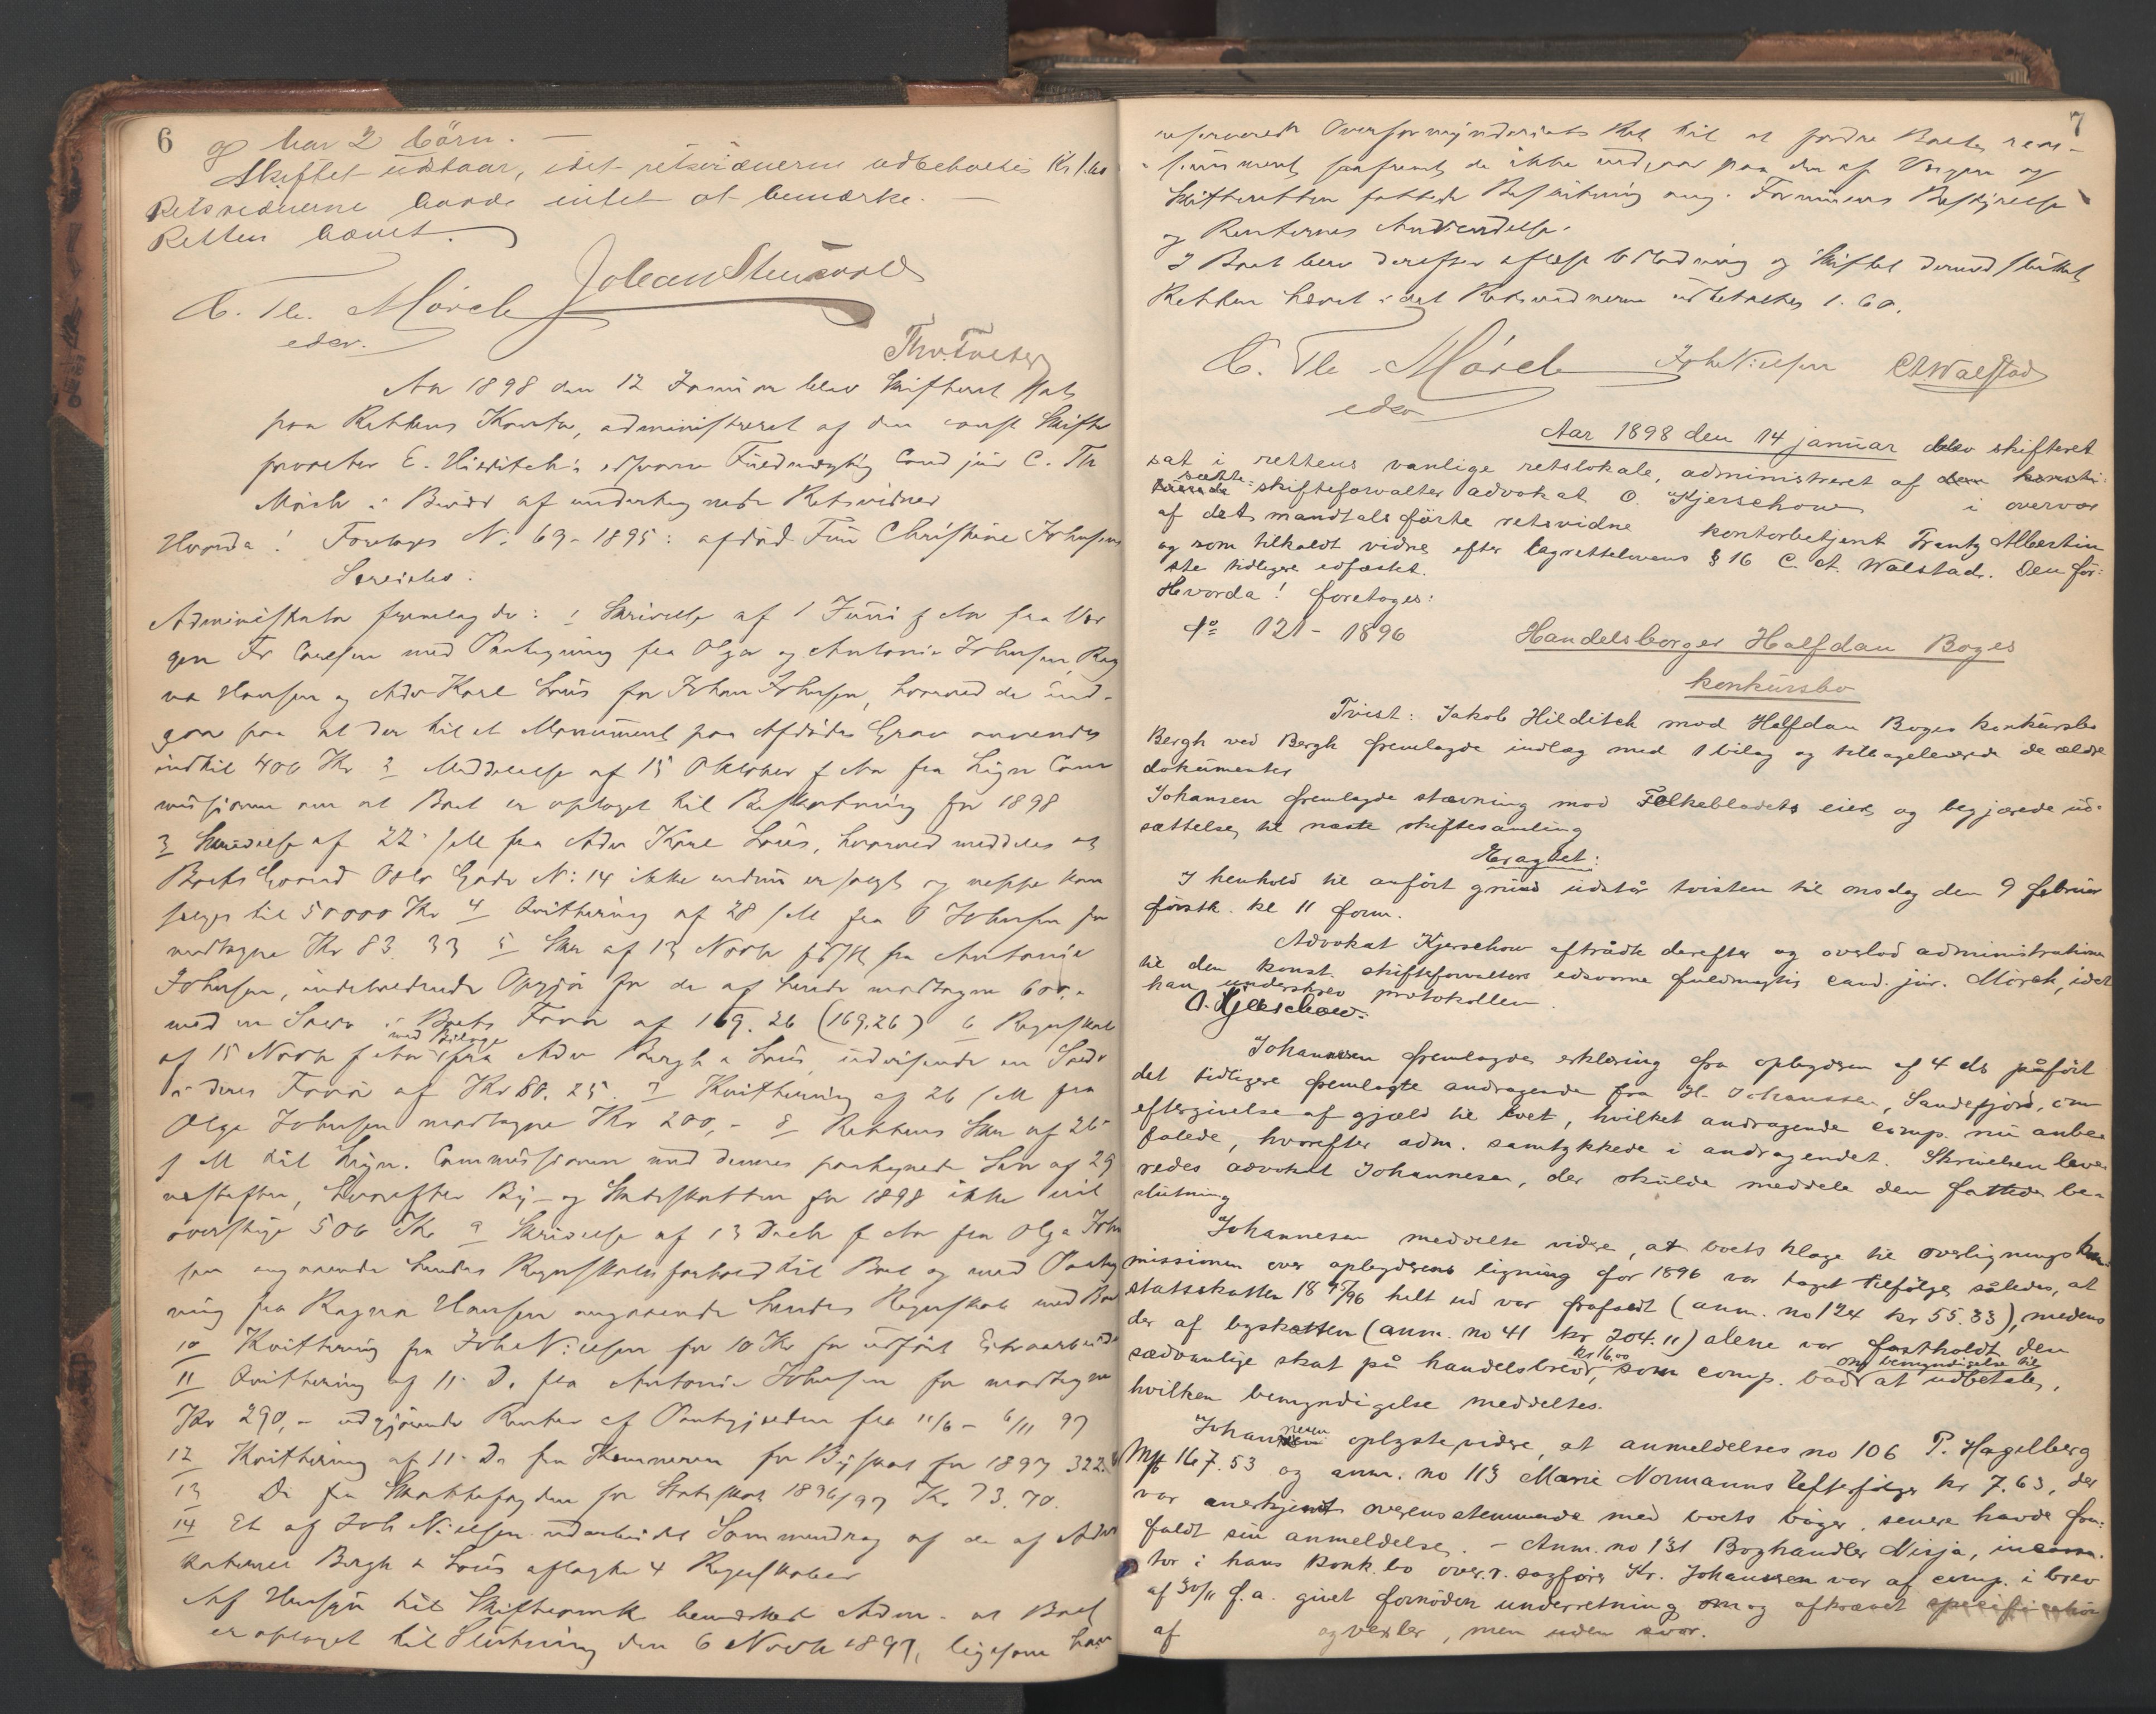 6
og har 2 börn. —
Skiftet udstaar, idet retsvidnerne udbetaltes Kr 1.60
Retsvidnerne havde intet at bemærke. —
Retten hævet.
C. Th. Mörch
edsv.
Aar 1898 den 12 Januar blev Skifteret sat
paa Rettens Kontor, administreret af den const Skifte
forvalter E. Hilditch's edsvorne Fuldmægtig Cand jur C. Th
Mörch i Overvær af undertegnede Retsvidner
Hvorda! Foretages No 69-1895: afdöd Fru Christine Johnsens
Administrator fremlagde: 1 Skrivelse af 1 Juni f Aar fra Vær
gen Fr Carlsen med Paategning fra Olga og Antonie Johnsen, Rag
na Hansen og Adv Karl Lous for Johan Johnsen, hvorved de ind-
gaar paa at der til et Monument paa Afdödes Grav anvendes
indtil 400 Kr 2 Meddelelse af 15 Oktober f Aar fra Lign Com
missionen om at Boet er optaget til Beskatning for 1898
3 Skrivelse af 22 s/M fra Adv Karl Lous, hvorved meddeles at
Boets Gaard Oslo Gade No: 14 ikke endnu er solgt og neppe kan
sælges til 50000 Kr 4 Qvittering af 28 s/M fra O Johnsen for
modtagne Kr 83.33 5 Skr af 13 Novbr f Aar fra Antonie
Johnsen, indeholdende Opgjör for de af hende modtagne 600,-
med en Saldo i Boets Favör af 169.26 (169.26) 6 Regnskab
med Bilage
af 15 Novbr f Aar fra Adv Bergh & Lous, udvisende en Saldo
i deres Favör af Kr 80.25. 7 Kvittering af 26 s/M fra
Olga Johnsen modtagne Kr 200,- 8 Rettens Skr af 26
s M til Lign. Commissionen med dennes paategnede Svar af 29
næstefter, hvorefter By- og Statsskatten for 1898 ikke vil
overstige 506 Kr 9 Skrivelse af 13 Decbr f Aar fra Olga John
sen angaaende hendes Regnskabsforhold til Boet og med Paateg
ning fra Ragna Hansen angaaende hendes Regnskab med Boet
10 Kvittering fra Joh Nielsen for 10 Kr for udfört Extraarbeide
11 Qvittering af 11 D. fra Antonie Johnsen for modtagne
Kr 290,- udgjörende Renter af Pantegjælden fra 11/6 - 6/11 97
12 Kvittering af 11 D. fra Kemneren for Byskat for 1897 322.
13 Do fra Skattefogden for Statsskat 1896/97 Kr 73.70.
14 Et af Joh Nielsen udarbeidet Sammendrag af de af Advo
katerne Bergh & Lous aflagte 4 Regnskaber
Af Hensyn til Skiftearok bemærket Adm. at Boet
er optaget til Slutning den 6 Novbr 1897, ligesom han
7
reserverede Overformynderiets Ret til at fordre Boets reas-
sumeret saafremt de ikke indgaar paa den af Værgen og
Skifteretten fattede Beslutning ang. Formuens Bestyrelse
og Renternes Anvendelse.
I Boet blev derefter aflagt Udlodning og Skiftet dermed sluttet
Retten hævet idet Retsvidnerne udbetaltes 1.60.
C. Th. Mörch Joh Nielsen C A Walstad
edsv
Aar 1898 den 14 januar blev skifteret
sat i rettens vanlige retslokale, administreret af den konsti-
satte skifteforvalter advokat O. Kjerschow i overvær
af det mandtalsförte retsvidne kontorbetjent Frantz Albertin
og som tilkaldt vidne efter lagrettelovens § 16 C. A. Walstad. Den för-
ste tidligere edfæstet.
Hvorda! foretoges:
No 121-1896 Handelsborger Halfdan Boges
konkursbo
Tvist: Jakob Hilditch mod Halfdan Boges konkursbo
Bergh ved Bergh fremlagde indlæg med 1 bilag og tilbageleverede de ældre
dokumenter
Johansen fremlagde stævning mod Folkebladets eiere og begjærede ud-
sættelse til næste skiftesamling
Eragtet:
I henhold til anfört grund udstår tvisten til onsdag den 9 februar
förstk. kl 11 form.
Advokat Kjerschow aftrådte derefter og overlod administrationen
til den konst. skifteforvalters edsvorne fuldmægtig cand. jur. Mörch, idet
han underskrev protokollen.
O. Kjerschow.
Johannesen fremlagde erklæring fra opbyderen af 4 ds påfört
det tidligere fremlagte andragende fra H. Johanssen, Sandefjord, om
eftergivelse af gjæld til boet, hvilket andragende comp. nu anbe-
falede, hvorefter adm. samtykkede i andragendet. Skrivelsen leve-
redes advokat Johannesen, der skulde meddele den fattede be-
slutning
Johannesen meddelte videre, at boets klage til overligningskom-
missionen over opbyderens ligning for 1896 var taget tilfölge således, at
statsskatten 1895/96 helt ud var frafaldt (anm. no 124 kr 55.33), medens
der af byskatten (anm. no 41 kr 204.11) alene var fastholdt den
sædvanlige skat på handelsbrev, kr 16.00 som comp. bad om bemyndigelse til at udbetale,
hvilken bemyndigelse meddeltes.
Johannesen oplyste videre, at anmeldelses no 106 P. Hagelberg
Mk 167.53 og anm. no 113 Marie Normanns Eftefölger kr 7.63, der
var anerkjendt overensstemmende med boets böger, senere havde fra-
faldt sin anmeldelse. - Anm. no 131 Boghandler Nisja, incassa-
tor i hans konk.bo over.r.sagförer Kr. Johanssen var af comp. i brev
af 30/11 f.a. givet fornöden underretning om og afkrævet specifikation
af og vexler, men uden svar.